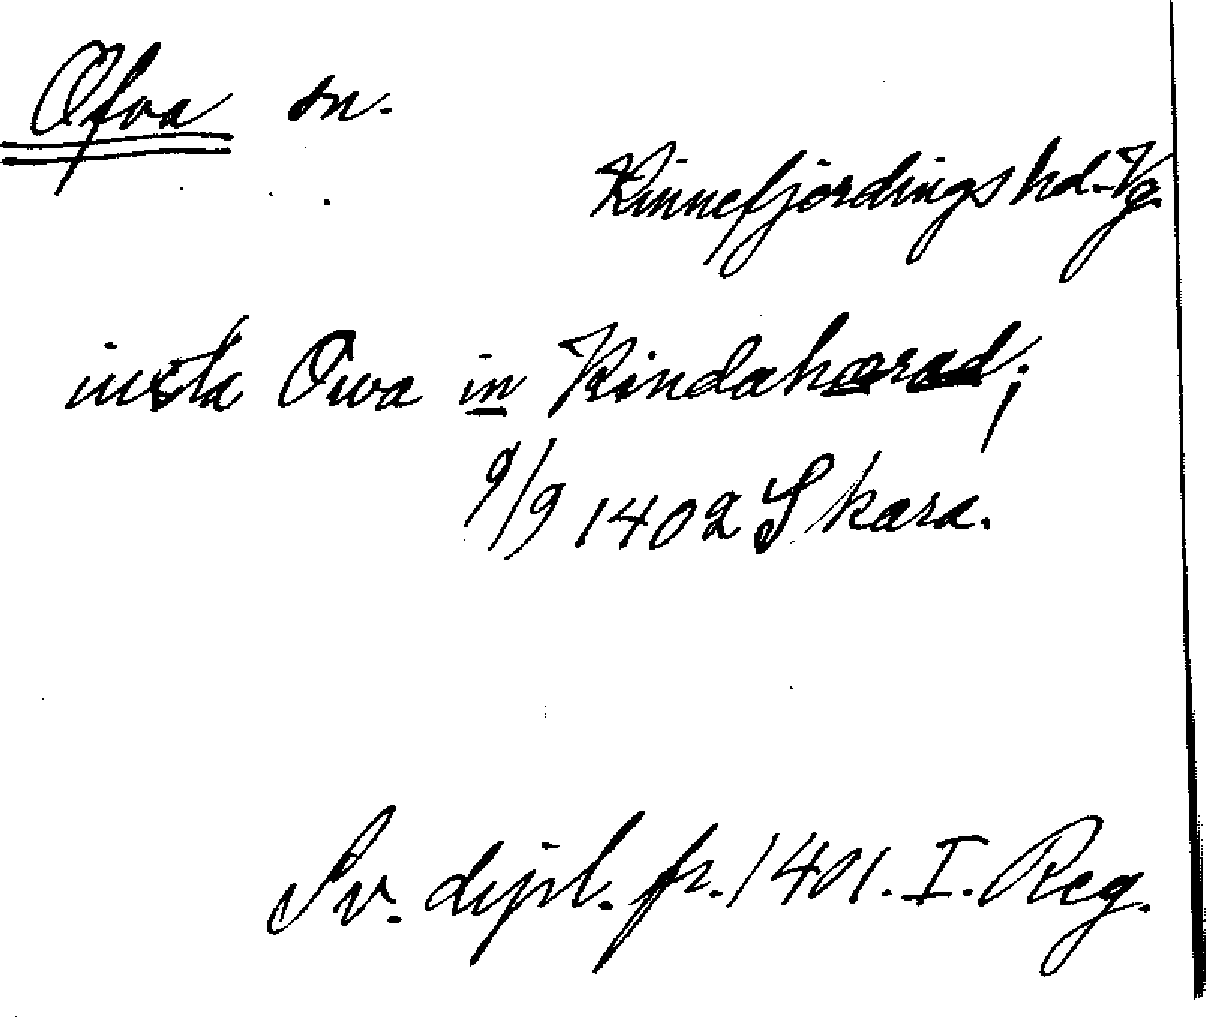 Ofva sn.
Kinnefjerdings hd. Vg.
insta Owa in Kindahærad;
9/9 1402 Skara.
Sv. dipl. fr. 1401. I. Reg.